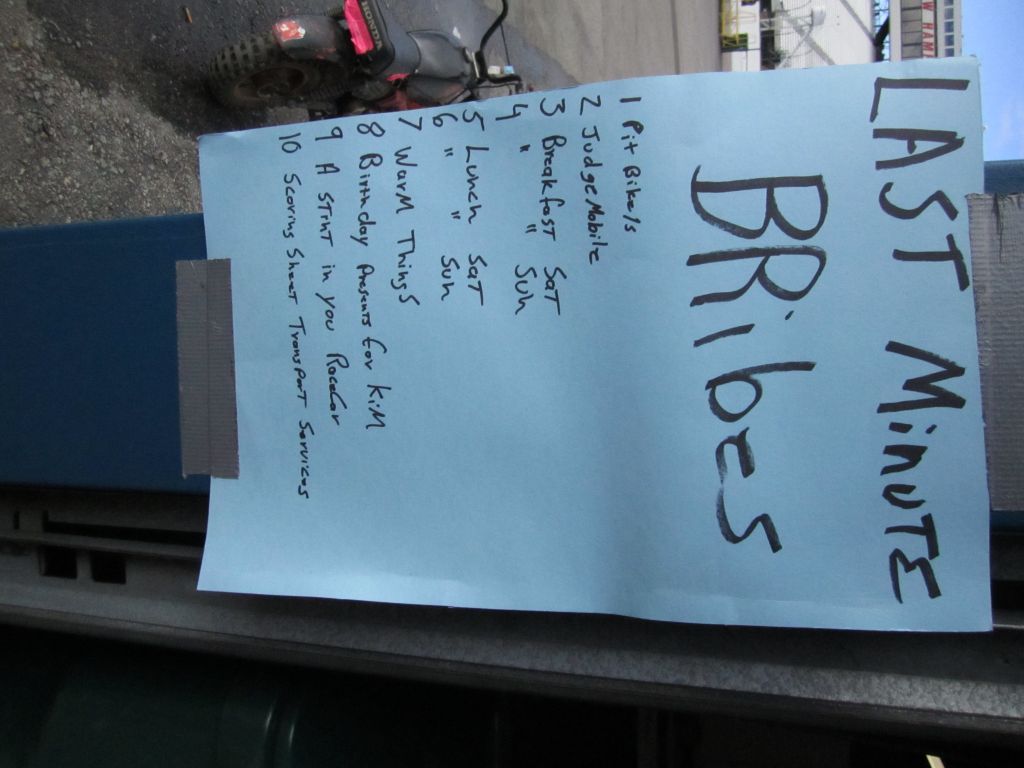 LAST MiNUTE
BRibes
1 Pit Bike/s
2 Judge Mobile
3 Breakfast SaT
4 " " Sun
5 Lunch SaT
6 " " Sun
7 WarM ThingS
8 Birthday Presents for KiM
9 A STinT in you RaceCar
10 Scoring Sheet TransporT Services
HONDA
W HAM